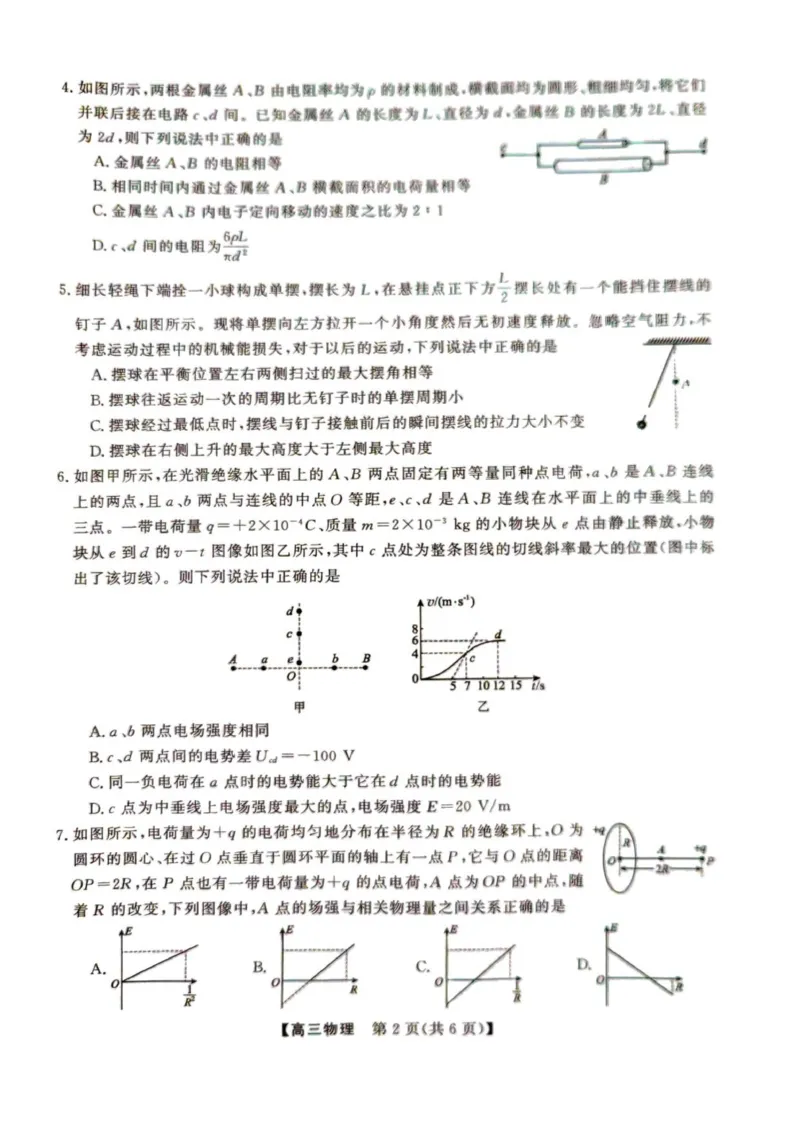 4. 如图所示,两根金属丝 A、B 由电阻率均为ρ 的材料制成,横截面均为圆形、粗细均匀,将它们
并联后接在电路 c、d 间。已知金属丝 A 的长度为 L、直径为 d,金属丝 B 的长度为 2L、直径
为 2d,则下列说法中正确的是
A
c
d
B
A. 金属丝 A、B 的电阻相等
B. 相同时间内通过金属丝 A、B 横截面积的电荷量相等
C. 金属丝 A、B 内电子定向移动的速度之比为 2∶1
D. c、d 间的电阻为6ρL/πd²
5. 细长轻绳下端拴一小球构成单摆,摆长为 L,在悬挂点正下方L/2摆长处有一个能挡住摆线的
钉子 A,如图所示。现将单摆向左方拉开一个小角度然后无初速度释放。忽略空气阻力,不
考虑运动过程中的机械能损失,对于以后的运动,下列说法中正确的是
A. 摆球在平衡位置左右两侧扫过的最大摆角相等
A
B. 摆球往返运动一次的周期比无钉子时的单摆周期小
C. 摆球经过最低点时,摆线与钉子接触前后的瞬间摆线的拉力大小不变
D. 摆球在右侧上升的最大高度大于左侧最大高度
6. 如图甲所示,在光滑绝缘水平面上的 A、B 两点固定有两等量同种点电荷,a、b 是 A、B 连线
上的两点,且 a、b 两点与连线的中点 O 等距,e、c、d 是 A、B 连线在水平面上的中垂线上的
三点。一带电荷量 q=+2×10⁻⁴C、质量 m=2×10⁻³ kg 的小物块从 e 点由静止释放,小物
块从 e 到 d 的 v-t 图像如图乙所示,其中 c 点处为整条图线的切线斜率最大的位置(图中标
出了该切线)。则下列说法中正确的是
d
c
A a e b B
O
甲
v/(m·s⁻¹)
8
6
4
0
d
c
5 7 10 12 15 t/s
乙
A. a、b 两点电场强度相同
B. c、d 两点间的电势差 U_cd=-100 V
C. 同一负电荷在 a 点时的电势能大于它在 d 点时的电势能
D. c 点为中垂线上电场强度最大的点,电场强度 E=20 V/m
7. 如图所示,电荷量为+q 的电荷均匀地分布在半径为 R 的绝缘环上,O 为
圆环的圆心、在过 O 点垂直于圆环平面的轴上有一点 P,它与 O 点的距离
OP=2R,在 P 点也有一带电荷量为+q 的点电荷,A 点为 OP 的中点,随
着 R 的改变,下列图像中,A 点的场强与相关物理量之间关系正确的是
+q
R
O
A
+q
P
2R
A. E O 1/R²
B. E O R
C. E O 1/R
D. E O R
【高三物理 第 2 页(共 6 页)】